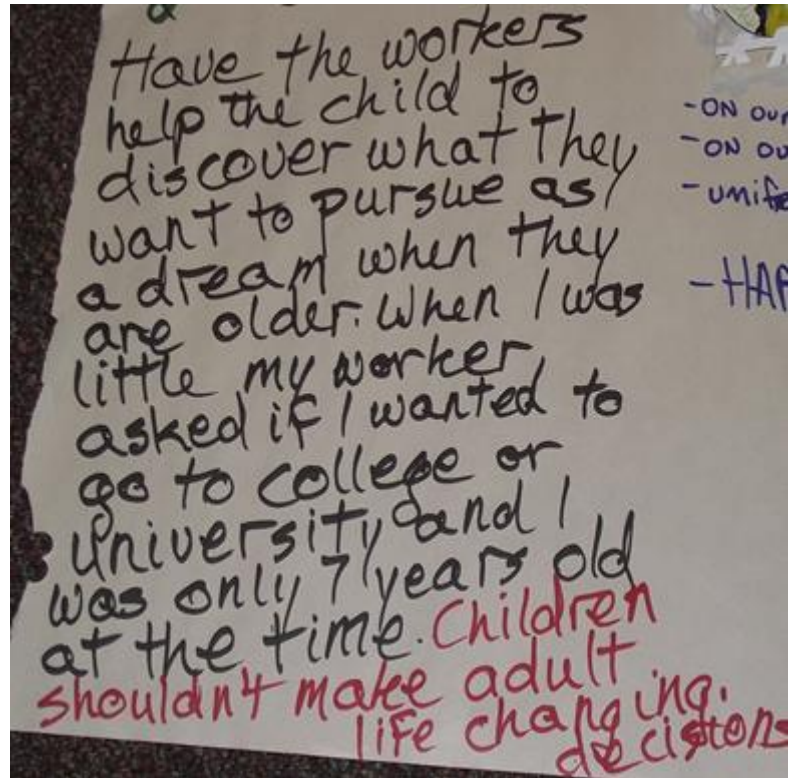 Have the workers
help the child to
discover what they
want to pursue as
a dream when they
are older. When I was
little my worker
asked if I wanted to
go to college or
university and I
was only 7 years old
at the time. Children
shouldn't make adult
life changing.
decisions
-ON OUR
-ON OU
-unif
-HAP